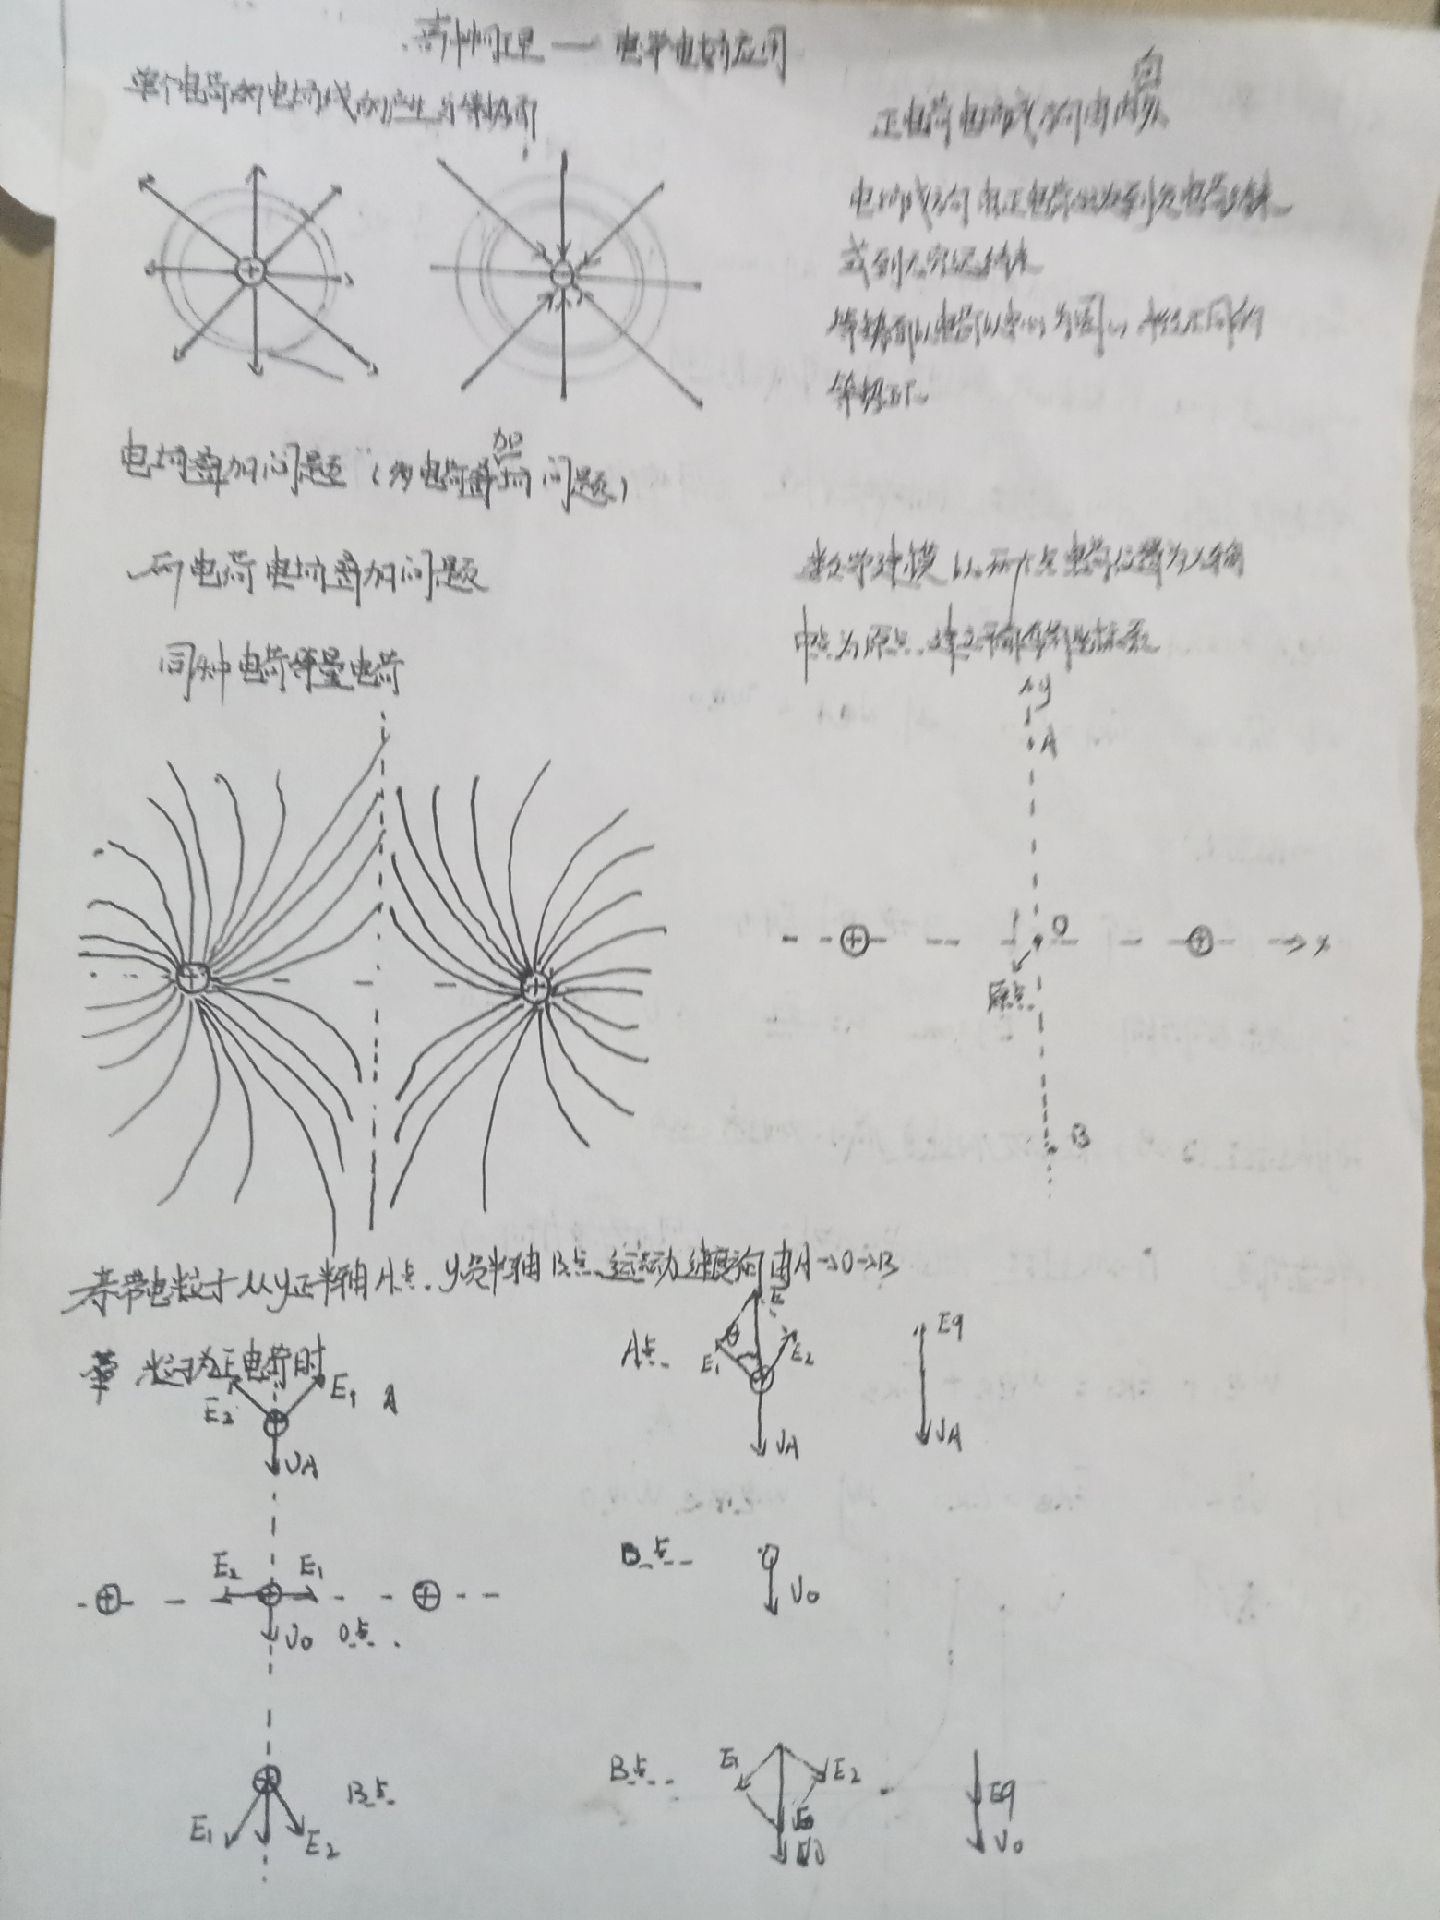 高中物理 — 电学电场应用
单个电荷的电场线的产生与等势面
正电荷电场线方向由内向外
电场线方向由正电荷出发到负电荷结束
或到无穷远结束
等势面以电荷以中心为圆心 半径不同的
等势面
电场叠加问题（多电荷叠加场问题）
两电荷电场叠加问题
数学建模 以两个点电荷位置为X轴
中点为原点.建立平面直角坐标系
同种电荷等量电荷
y
A
O
x
原点
B
若带电粒子从y正半轴A点.y负半轴B点.运动速度方向由A→O→B
粒子为正电荷时
E2 E1 A
VA
A点. E1 E2 E θ
VA
Eq
VA
E2 E1
V0 O点.
B点.
V0
E1 E2
B点.
B点. E1 E2
Eq
V0